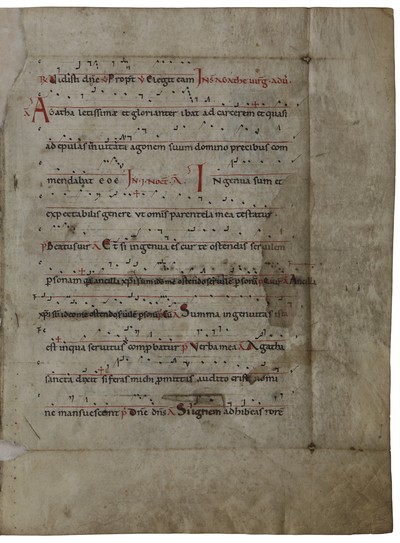 Vidisti dñe ℣ Propt ℣ Elegit eam In S Agathe virg. adu.
Agatha letissima et glorianter ibat ad carcerem et quasi
ad epulas invitata agonem suum domino precibus com
mendabat e o e In .I. Noct. A Ingenua sum et
expectabilis genere ut omis parentela mea testatur
p Beatus uir A Et si ingenua es cur te ostendis seruilem
psonam quia ancilla xpi sum ideo me ostendo seruile psonã A Ancilla
xpi sũ ideo me ostendo seruilẽ psonã A Summa ingenuitas ista
est in qua seruitus comp batur p Verba mea A Agatha
sancta dixit si feras michi pmittas audito cristi nomi
ne mansuescent p Dñe dñs A Si ignem adhibeas rorẽ